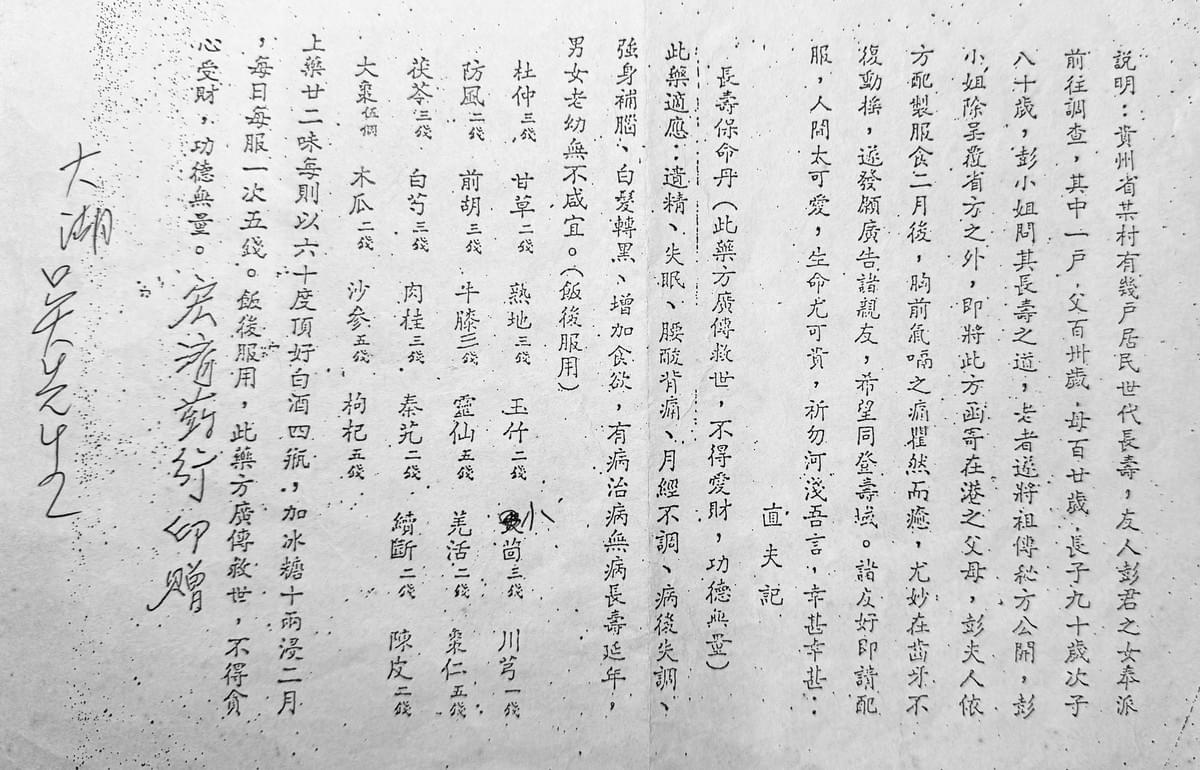 說明：貴州省某村有幾戶居民世代長壽，友人彭君之女奉派
前往調查，其中一戶．父百卅歲．母百廿歲．長子九十歲次子
八十歲，彭小姐問其長壽之道，老者遂將祖傳秘方公開，彭
小姐除呈覆省方之外，即將此方函寄在港之父母，彭夫人依
方配製服食二月後，胸前氣喘之痛瞿然而癒，尤妙在齒牙不
復動搖，遂發願廣告諸親友，希望同登壽域。諸友好即請配
服，人間太可愛，生命尤可貴，祈勿河淺吾言，幸甚幸甚：
直夫記
長壽保命丹（此藥方廣傳救世，不得愛財，功德無量）
此藥適應：遺精、失眠、腰酸背痛、月經不調、病後失調、
強身補腦、白髮轉黑、增加食欲，有病治病無病長壽延年，
男女老幼無不咸宜。（飯後服用）
杜仲三錢 甘草二錢 熟地三錢 玉竹二錢 小茴三錢 川芎一錢
防風二錢 前胡三錢 牛膝三錢 靈仙五錢 羌活二錢 棗仁五錢
茯苓三錢 白芍三錢 肉桂三錢 秦艽二錢 續斷二錢 陳皮二錢
大棗伍個 木瓜二錢 沙參五錢 枸杞五錢
上藥廿二味每則以六十度頂好白酒四瓶，加冰糖十兩浸二月
，每日每服一次五錢。飯後服用，此藥方廣傳救世，不得貪
心受財，功德無量。宏濟葯行印贈
大湖吳先生